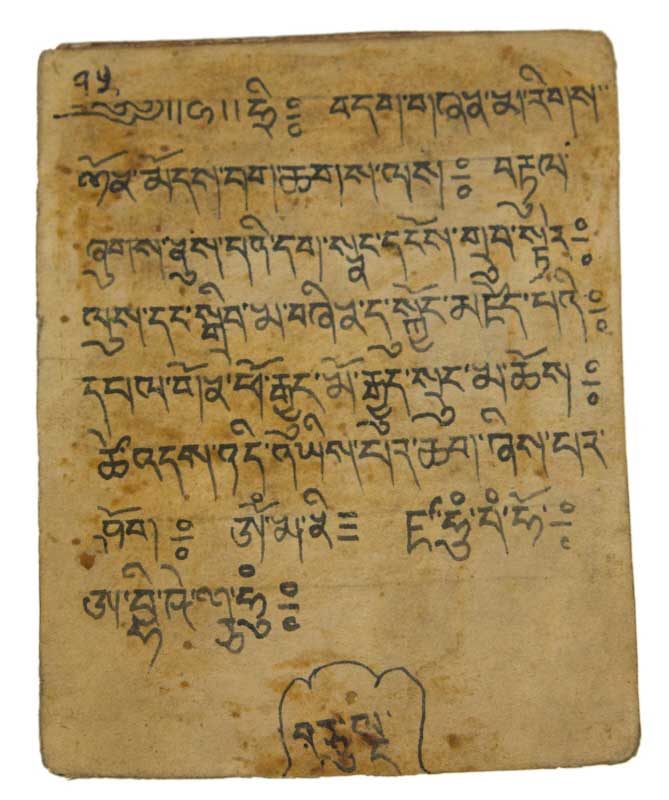 ༡༥
༄༅།།ཧྲི༔ བདག་མ་རིགས་
ཉོན་མོངས་བག་ཆགས་ལས༔ བརྟུལ་
ཞུགས་ནུས་པའི་དག་སྣང་དངོས་གྲུབ་སྟེར༔
ལུས་དང་སྒྲིབ་མ་བཞིན་དུ་སྐྱོང་མཛོད་པའི༔
དཔལ་བོན་ཕོ་རྒྱུད་མོ་རྒྱུད་སྲུང་མ་ཚོས༔
ཚེ་འདས་འདི་ཡིས་པར་ཆག་ཞིས་པར་
ཤོག༔ ཨོཾ་མ་ནི༔ ཛཿཧཱུྃ་བཾ་ཧོ༔
ཨ་བྷི་ཥེ་ཀ་ཧཱུྃ༔